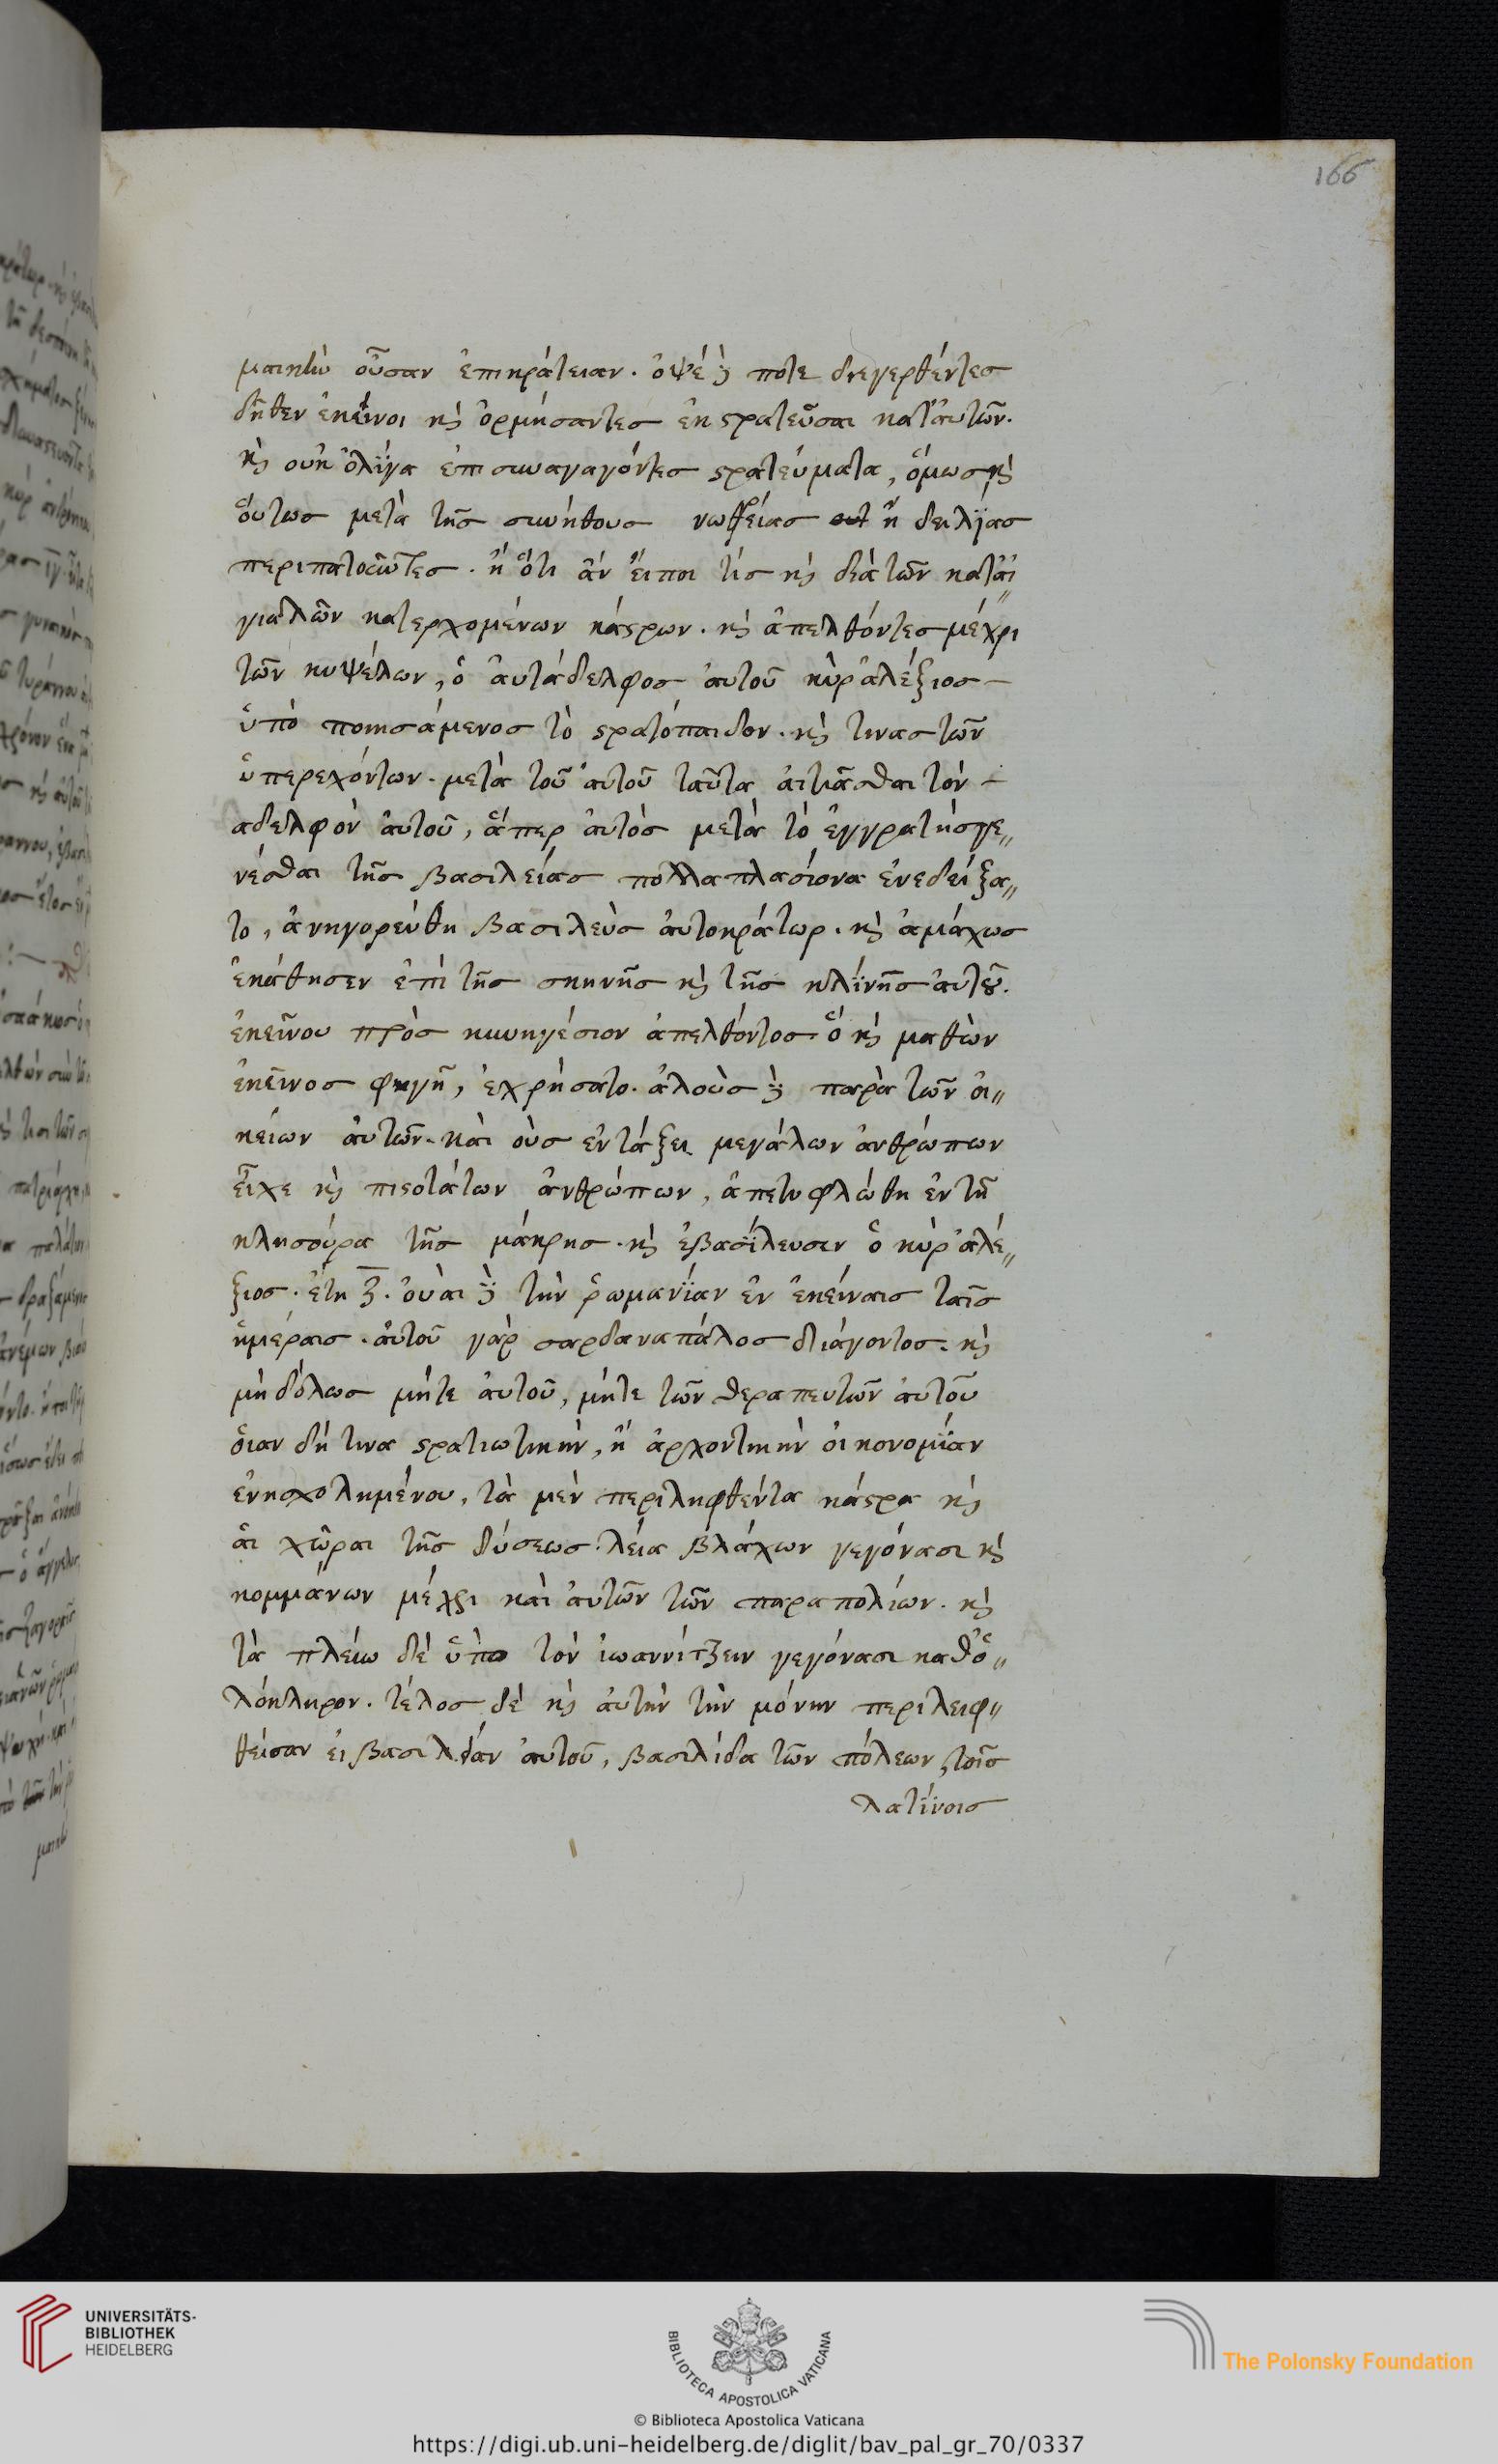 166
μαικὴν οὖσαν ἐπικράτειαν. ὀψέ δέ ποτε διεγερθέντες
δῆθεν ἐκεῖνοι κỳ ὁρμήσαντες ἐκστρατεῦσαι κατ' αὐτῶν.
κỳ οὐκ ὀλίγα ἐπισυναγαγόντες στρατεύματα, ὅμως κỳ
οὕτως μετὰ τῆς συνήθους νωθρείας ἢ δειλίας
περιπατοῦντες. ἢ ὅτι ἂν εἴποι τίς κỳ διὰ τῶν κατ' αἰ〃
γιαλῶν κατερχομένων κάστρων. κỳ ἀπελθόντες μέχρι
τῶν κυψέλων, ὁ αὐτάδελφος αὐτοῦ κὺρ ἀλέξιος –
ὑπὸ ποιησάμενος τὸ στρατόπαιδον. κỳ τινας τῶν
ὑπερεχόντων. μετὰ τοῦ αὐτοῦ ταῦτα αἰτιᾶσθαι τόν –
αδελφὸν αὐτοῦ, ἅπερ αὐτὸς μετὰ τὸ ἐγγρατὴς γε〃
νέσθαι τῆς βασιλείας πολλαπλασίονα ἐνεδείξα〃
το, ἀνηγορεύθη βασιλεὺς αὐτοκράτωρ. κỳ ἀμάχως
ἐκάθησεν ἐπὶ τῆς σκηνῆς κỳ τῆς κλίνης αὐτοῦ.
ἐκείνου πρὸς κυνηγέσιον ἀπελθόντος ὃ κỳ μαθὼν
ἐκεῖνος φυγῇ, ἐχρήσατο. ἁλοὺς δέ παρὰ τῶν οἰ〃
κείων αὐτῶν. καὶ οὓς ἐν τάξει μεγάλων ἀνθρώπων
εἶχε κỳ πιστοτάτων ἀνθρώπων, ἀπετυφλώθη ἐν τῇ
κλησούρα τῆς μάκρης. κỳ ἐβασίλευσεν ὁ κὺρ ἀλέ〃
ξιος. ἔτη ζ. οὐαὶ δέ τὴν ῥωμανίαν ἐν ἐκείναις ταῖς
ἡμέραις. αὐτοῦ γὰρ σαρδαναπάλος διάγοντος. κỳ
μὴ δόλως μήτε αὐτοῦ, μήτε τῶν θεραπευτῶν αὐτοῦ
οἵαν δή τινα στρατιωτικὴν, ἢ ἀρχοντικὴν οἰκονομίαν
ἐνησχολημένου, τὰ μὲν περιληφθέντα κάστρα κỳ
αἱ χῶραι τῆς δύσεως. λεία βλάχων γεγόνασι κỳ
κομμάνων μέχρι καὶ αὐτῶν τῶν παραπολίων. κỳ
τὰ πλείω δὲ ὑπὸ τὸν ἰωαννίτζειν γεγόνασι καθ' ὁ〃
λόκληρον. τέλος δὲ κỳ αὐτὴν τὴν μόνην περιλειφ〃
θεῖσαν εἰ βασιλείαν αὐτοῦ, βασιλίδα τῶν πόλεων, τοῖς
λατίνοις
UNIVERSITÄTS-
BIBLIOTHEK
HEIDELBERG
BIBLIOTECA APOSTOLICA VATICANA
The Polonsky Foundation
© Biblioteca Apostolica Vaticana
https://digi.ub.uni-heidelberg.de/diglit/bav_pal_gr_70/0337